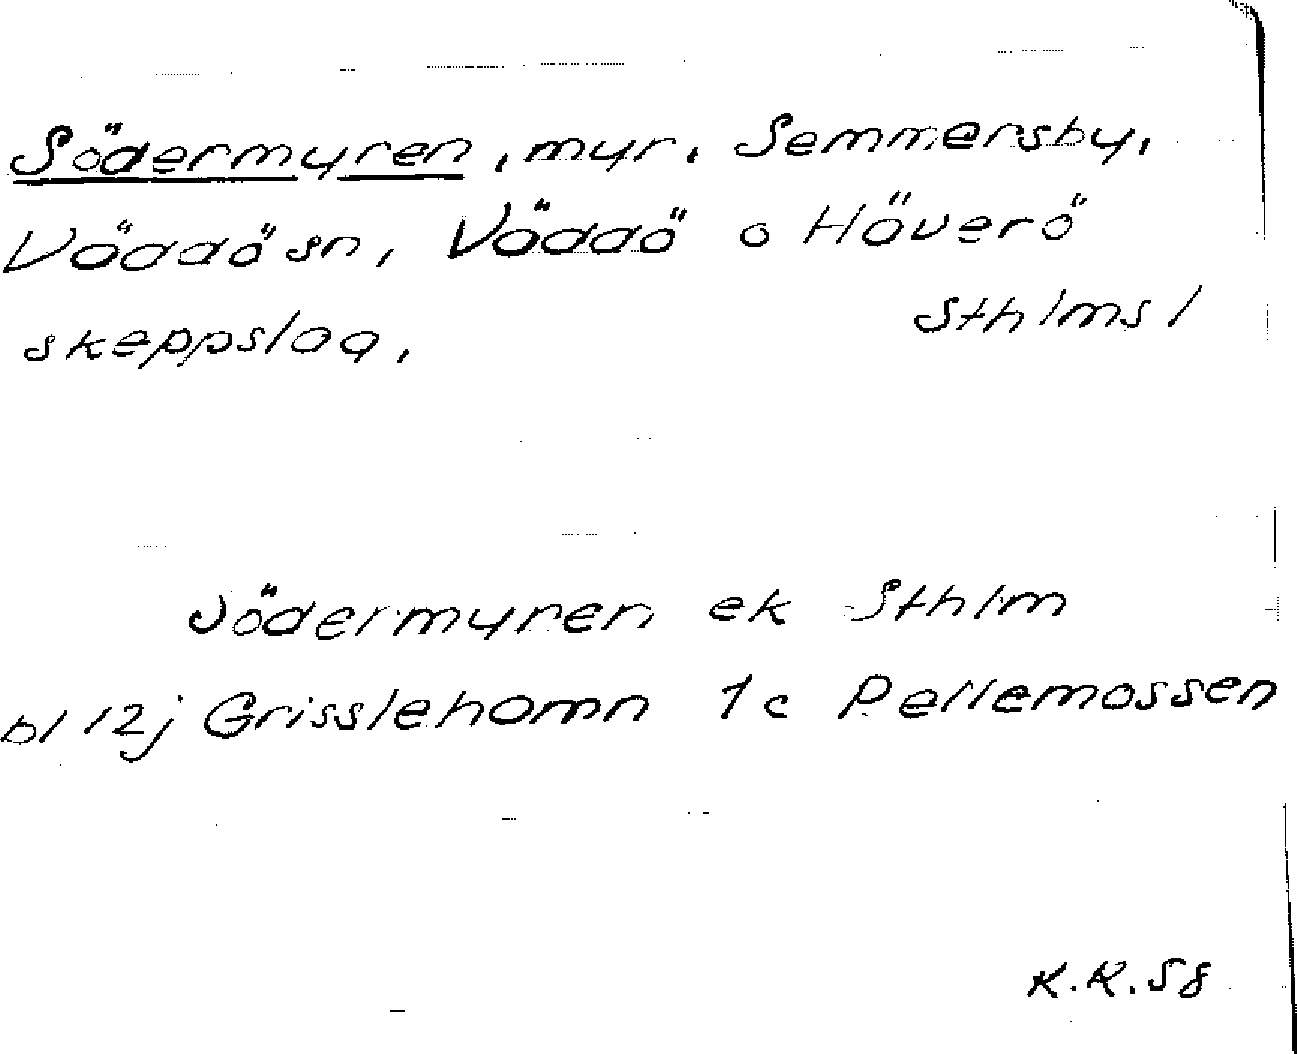 Södermyren, myr. Semmersby,
Väddö sn, Väddö o Häverö
skeppslag. Sthlms l
Södermyren ek Sthlm
bl 12j Grisslehomn 1c Pellemossen
K.K. 58